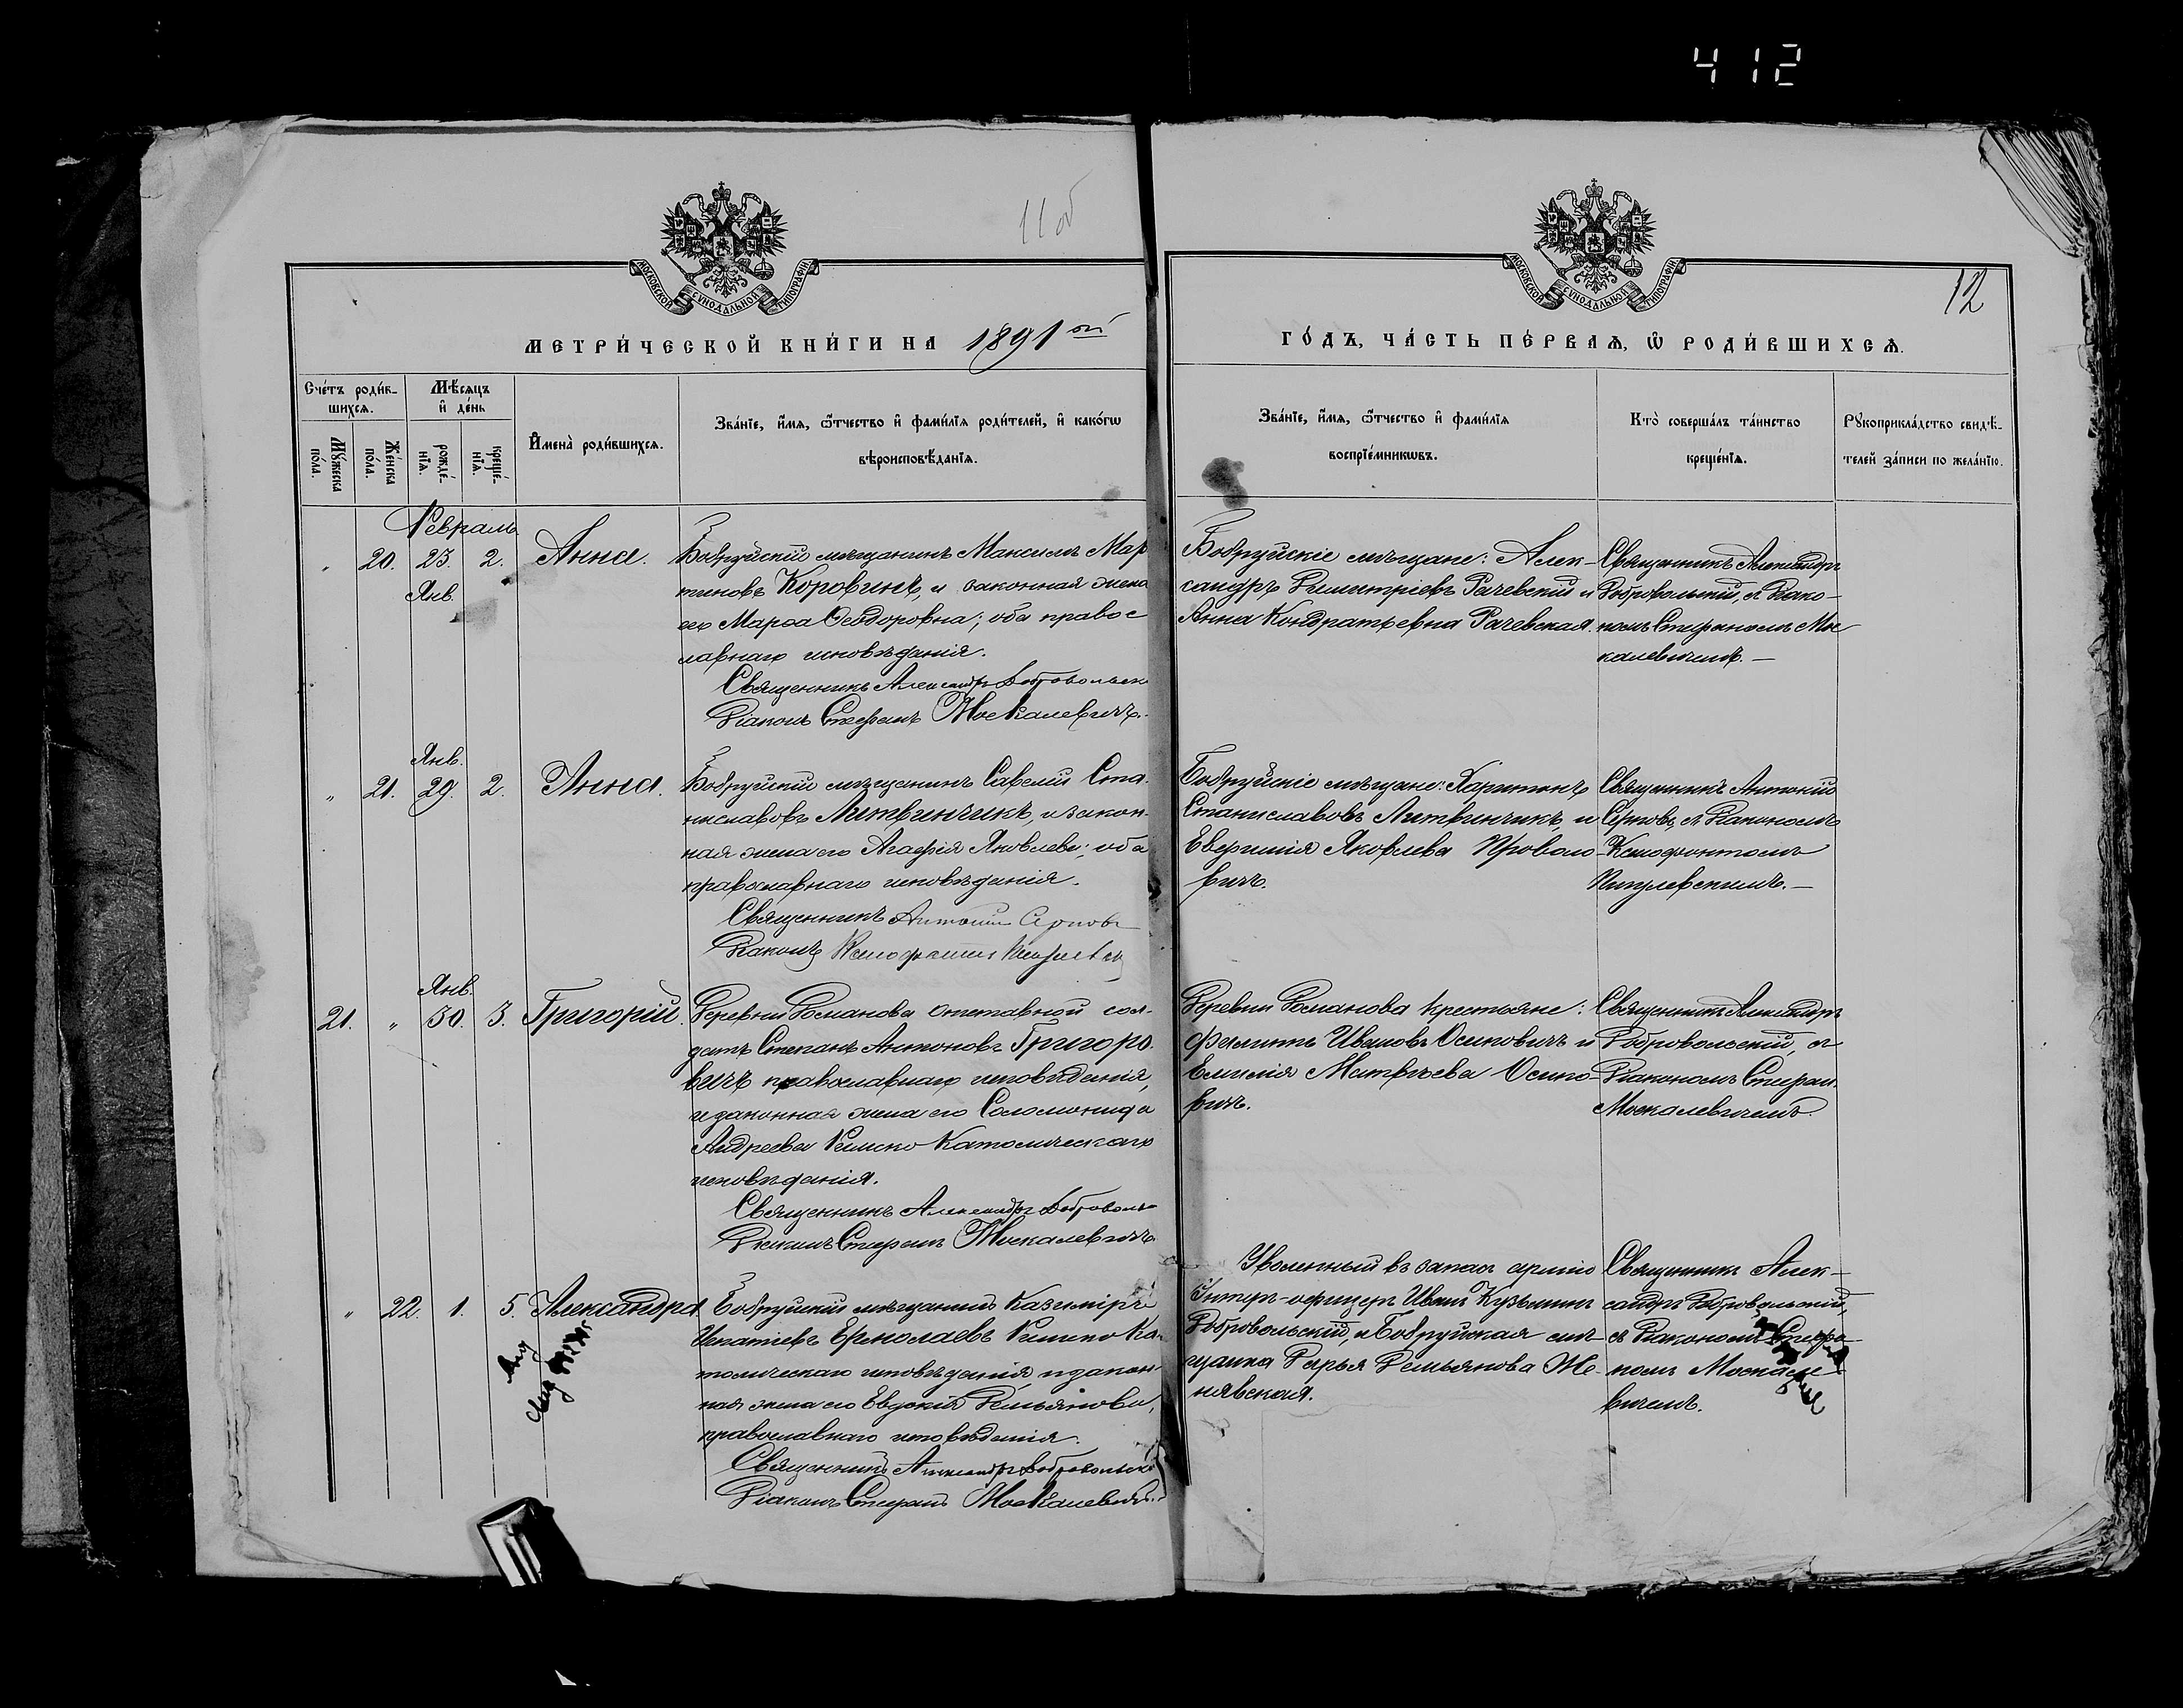 412
11об
12
МОСКОВСКОЙ СУНОДАЛЬНОЙ ТИПОГРАФІИ
МОСКОВСКОЙ СУНОДАЛЬНОЙ ТИПОГРАФІИ
МЕТРИ́ЧЕСКОЙ КНИ́ГИ НА 1891ый
ГО́ДЪ, ЧА́СТЬ ПЕ́РВАѦ, Ѡ҆ РОДИ́ВШИХСѦ.
Сче́тъ роди́в-
шихсѧ.
Мѣ́сѧцъ
и҆ де́нь
Му́жеска
по́ла.
Же́нска
по́ла.
рожде́-
нїѧ.
креще́-
нїѧ.
И҆мена̀ роди́вшихсѧ.
Зва́нїе, и҆́мѧ, ѻ҆́тчество и҆ фами́лїѧ роди́телей, и҆ како́гѡ
вѣроисповѣ́данїѧ.
Зва́нїе, и҆́мѧ, ѻ҆́тчество и҆ фами́лїѧ
воспрїе́мникѡвъ.
Кто̀ соверша́лъ та́инство
креще́нїѧ.
Рꙋкоприкла́дство свидѣ́-
телей за́писи по жела́нїю.
Февраль
" 20. 23. 2. Анна.
Янв.
Бобруйскій мѣщанинъ Максимъ Мар
тиновъ Коровинъ, и законная жена
его Марѳа Ѳеодоровна; оба правос
лавнаго исповѣданія.
Священникъ Александръ Добровольск
Діаконъ Стефанъ Москалевичъ.
Бобруйскіе мѣщане: Алек-
сандръ Димитріевъ Рачевскій и
Анна Кондратьевна Рачевская.
Священникъ Александръ
Добровольскій, съ Діако-
номъ Стефаномъ Мос
калевичемъ. —
Янв.
" 21. 29. 2. Анна.
Бобруйскій мѣщанинъ Савелій Ста-
ниславовъ Литвинчикъ, и закон-
ная жена его Агафія Яковлева; оба
православнаго исповѣданія.
Священникъ Антоній Серновъ
Діаконъ
Бобруйскіе мѣщане: Харитонъ
Станиславовъ Литвинчикъ, и
Евфимія Яковлева Проволо-
вичъ.
Священникъ Антоній
Серновъ, съ Діакономъ
Ксенофонтомъ
Янв.
21. " 30. 3. Григорій.
Деревни Романова отставной сол-
датъ Степанъ Антоновъ Григоро-
вичъ православнаго исповѣданія,
и законная жена его Соломонида
Андреева Римско Католическаго
исповѣданія.
Священникъ Александръ Доброволь
Діаконъ Стефанъ Москалевичъ
Деревни Романова крестьяне:
Филиппъ Ивановъ Осиповичъ и
Емилія Матвѣева Осипо-
вичъ.
Священникъ Александръ
Добровольскій, съ
Діакономъ Стефан.
Москалевичемъ.
" 22. 1. 5. Александра.
Бобруйскій мѣщанинъ Казиміръ
Игнатіевъ Ермолаевъ Римско Ка-
толическаго исповѣданія, и закон-
ная жена его Евдокія Демьянова,
православнаго исповѣданія.
Священникъ Александръ Добровольск
Діаконъ Стефанъ Москалевичъ.
Уволенный въ запасъ арміи
Унтеръ-офицеръ Иванъ Кузьминъ
Добровольскій, и Бобруйская мѣ-
щанка Дарья Демьянова Же-
нявская.
Священникъ Алек-
сандръ Добровольскій,
съ Діакономъ Стефа-
номъ Москале-
вичемъ.